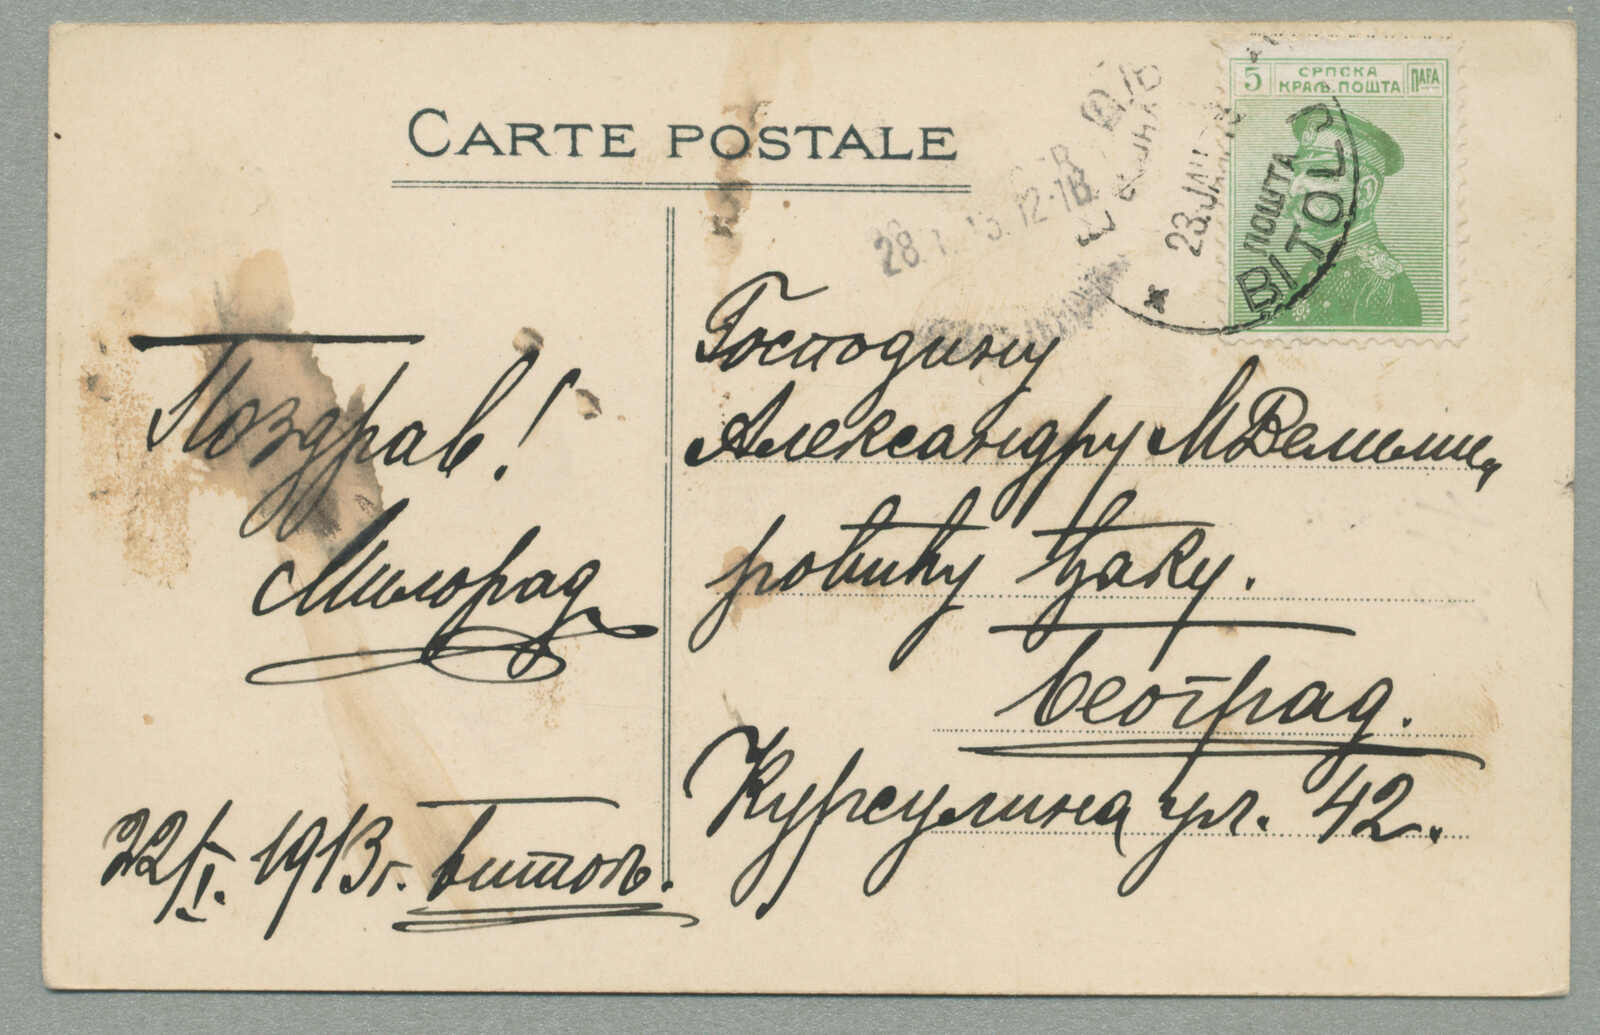 CARTE POSTALE
5 СРПСКА КРАЉ. ПОШТА ПАРА
ПОШТА
BITOLJ
23.JAN
28.1.13.12-1
Поздрав!
Милорад
22/I. 1913г. Битољ.
Господину
Александру М Велими,
ровићу ђаку.
Београд.
Курсулина ул. 42.